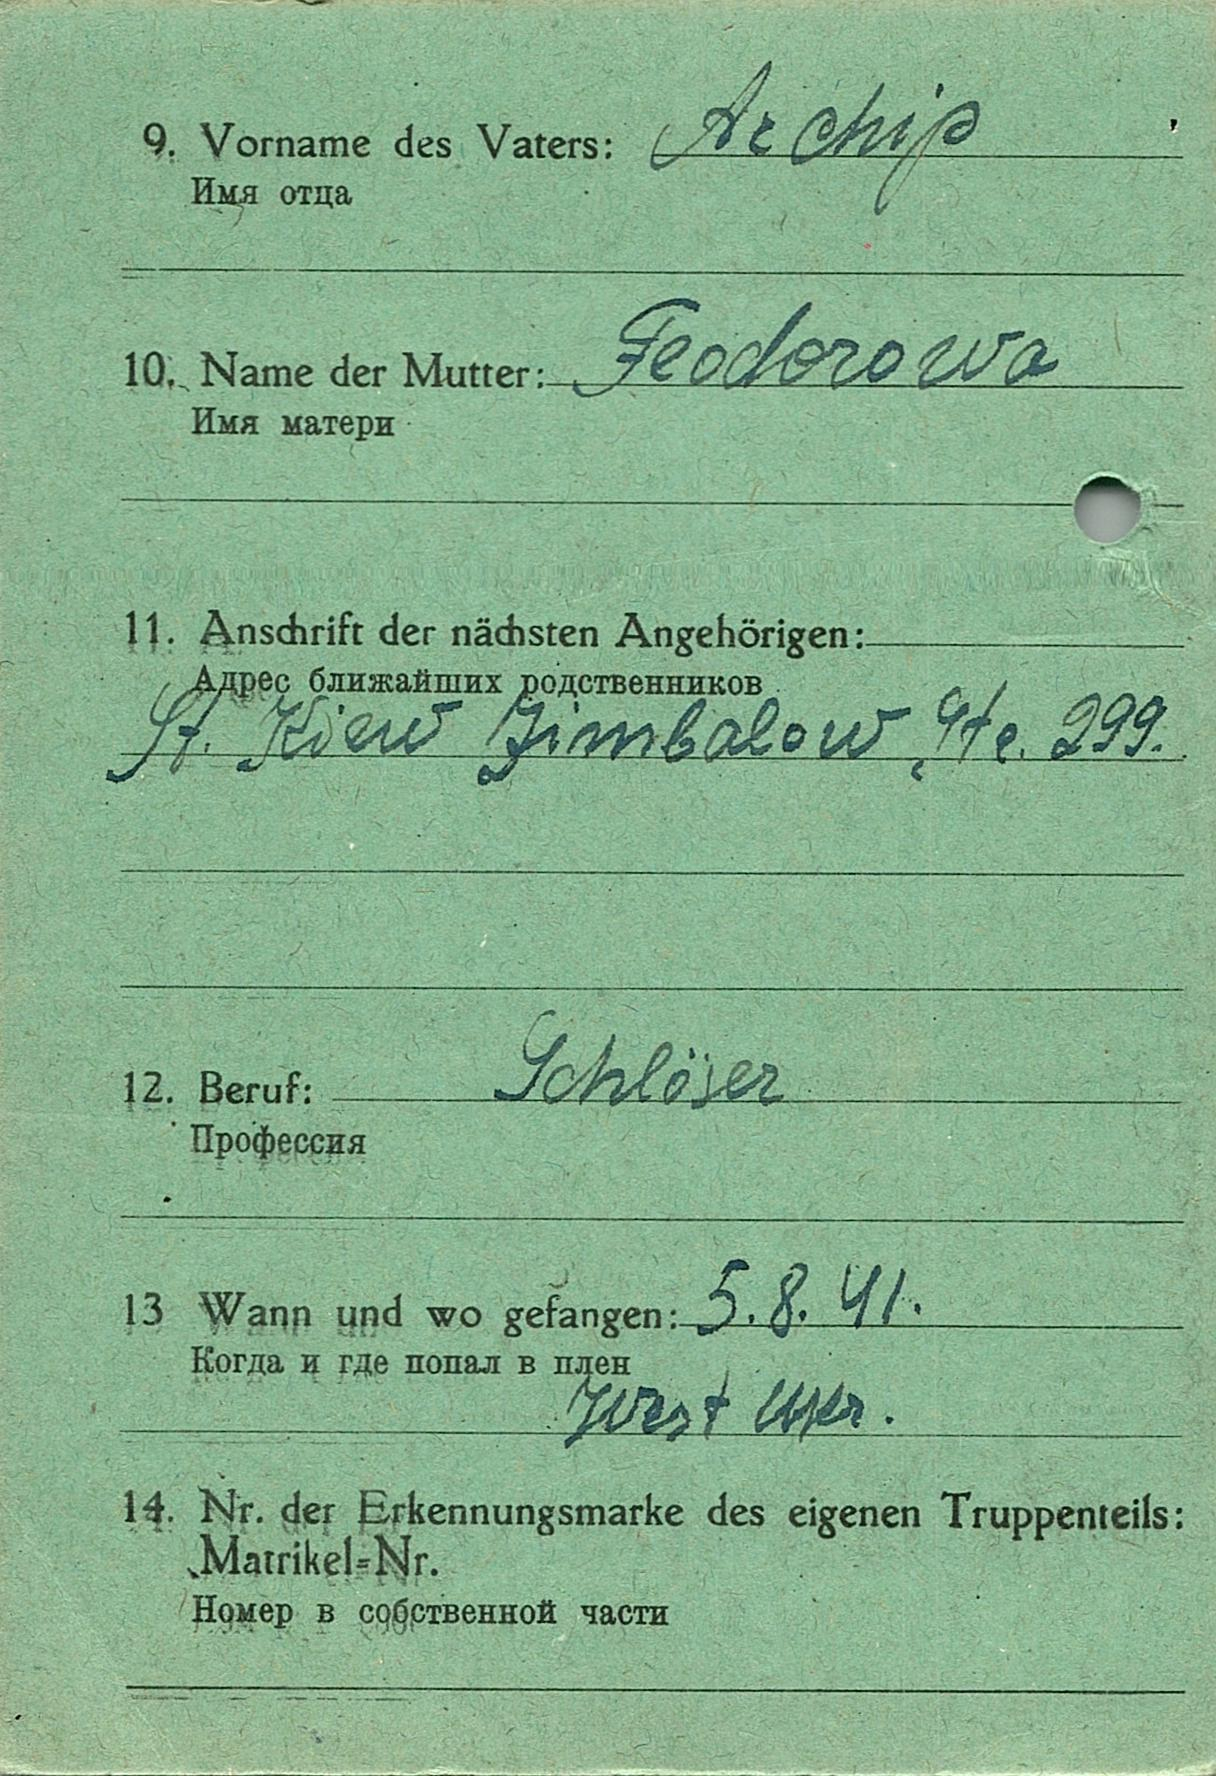 9. Vorname des Vaters: Archip
Имя отца
10. Name der Mutter: Feodorowa
Имя матери
11. Anschrift der nächsten Angehörigen:
Адрес ближайших родственников
St. Kiew Zimbalow, 299.
12. Beruf: Schlöser
Профессия
13 Wann und wo gefangen: 5. 8. 41.
Когда и где попал в плен
West Ukr.
14. Nr. der Erkennungsmarke des eigenen Truppenteils:
Matrikel-Nr.
Номер в собственной части